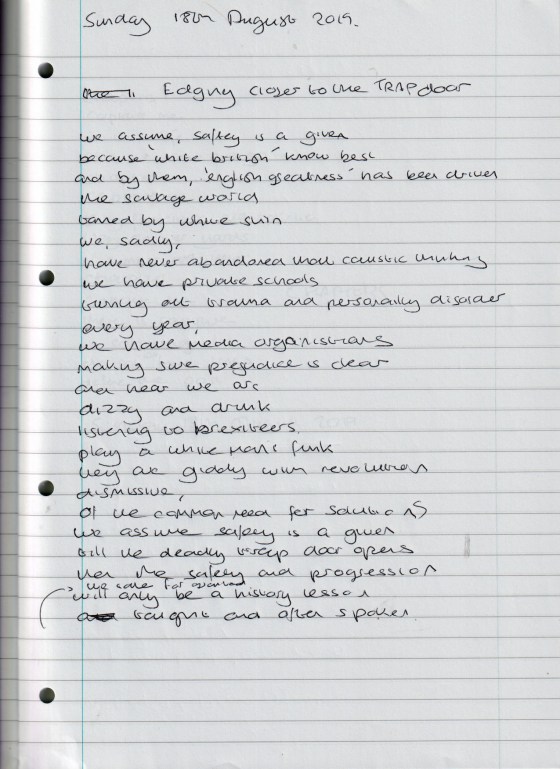 Sunday 18th August 2019.
Edging closer to the TRAP door
we assume, saftey is a given
because 'white british' know best
and by them, 'english greatness' has been driven
the savage world
tamed by white skin
we, sadly,
have never abandoned that caustic thinking
we have private schools
turning out trauma and personality disorder
every year,
we have media organistions
making sure prejudice is clear
and hear we are
dizzy and drunk
listening to brexiteers.
play a white man's funk
they are giddy with revolution
dismissive,
of the common need for solutions
we assume safety is a given
till the deadly trap door opens
then the safety and progression
we take for granted
will only be a history lesson
taught and often spoken